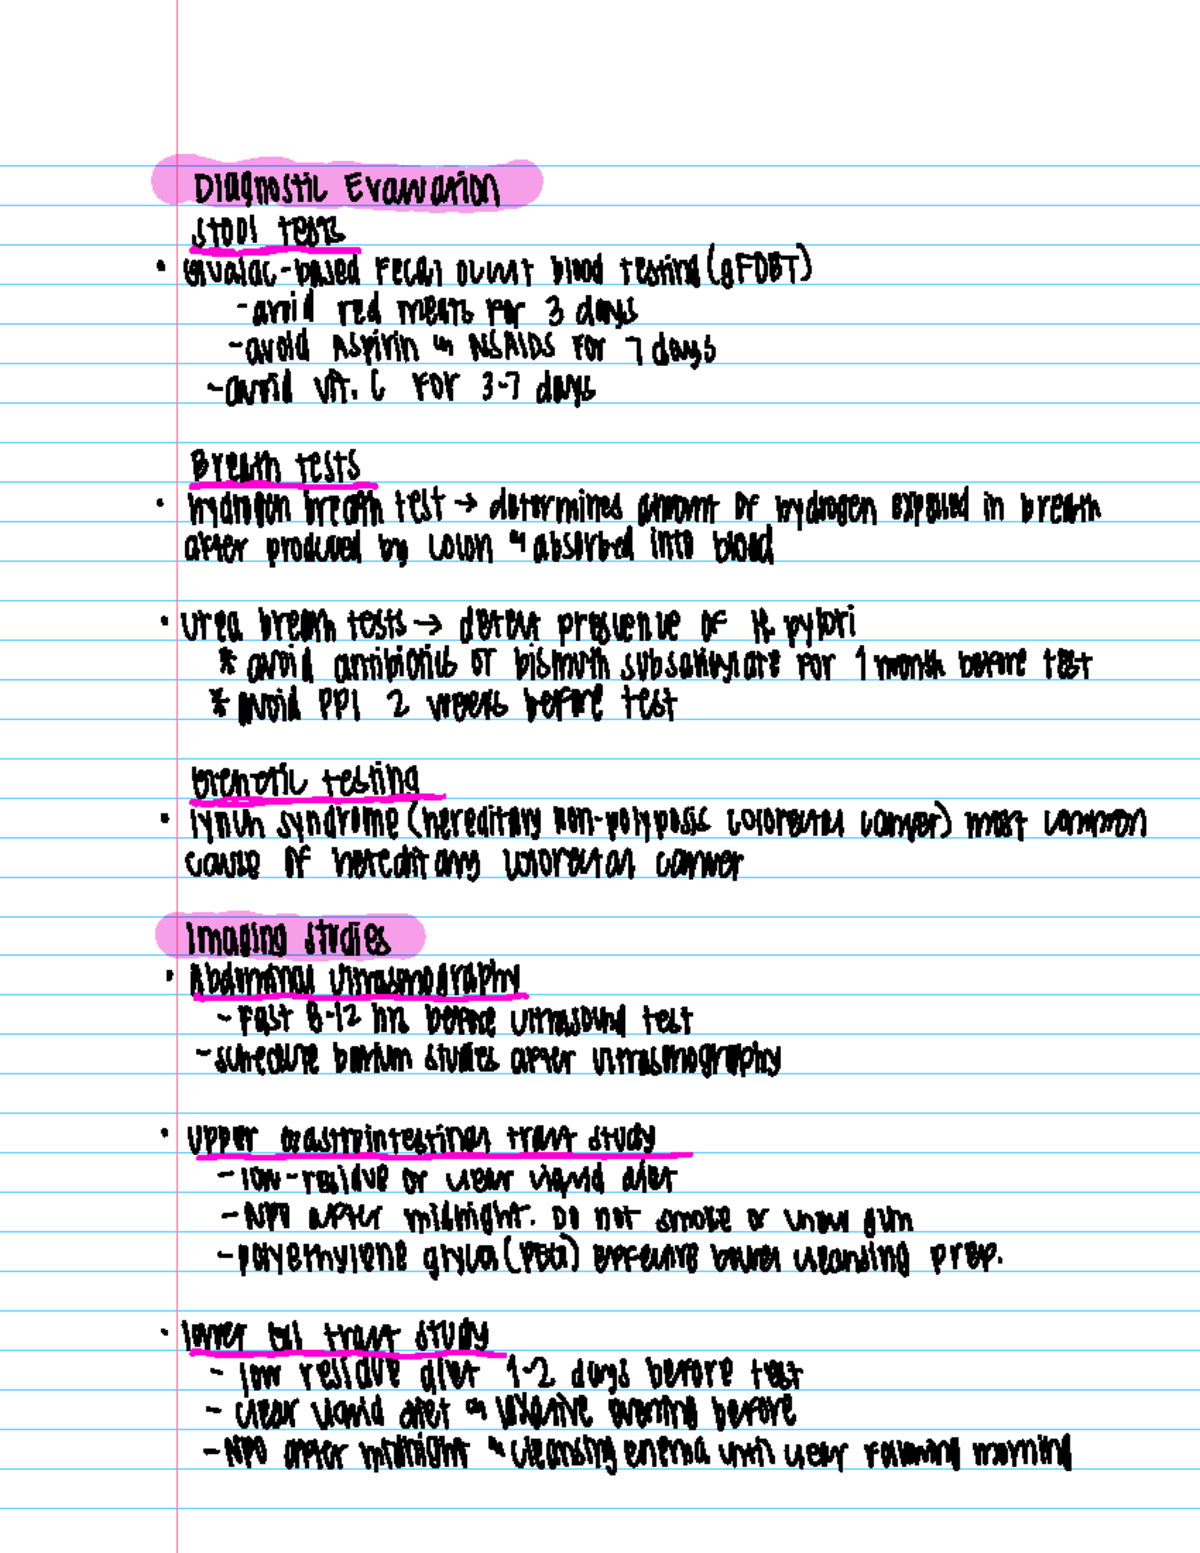 Diagnostic Evaluation
Stool tests
• Guaiac-based Fecal occult blood testing (gFOBT)
- avoid red meats for 3 days
- avoid Aspirin & NSAIDS for 7 days
- avoid vit. C for 3-7 days
Breath tests
• hydrogen breath test → determines amount of hydrogen expelled in breath
after produced by colon & absorbed into blood
• Urea breath tests → detect presence of H. pylori
* avoid antibiotics or bismuth subsalicylate for 1 month before test
* avoid PPI 2 weeks before test
Genetic testing
• lynch syndrome (hereditary non-polyposis colorectal cancer) most common
cause of hereditary colorectal cancer
Imaging Studies
• Abdominal Ultrasonography
- Fast 8-12 hrs before ultrasound test
- schedule barium studies after ultrasonography
• Upper Gastrointestinal tract study
- low-residue or clear liquid diet
- NPO after midnight. Do not smoke or chew gum
- polyethylene glycol (PEG) effective bowel cleansing prep.
• lower GI tract study
- low residue diet 1-2 days before test
- clear liquid diet & laxative evening before
- NPO after midnight & cleansing enema until clear following morning